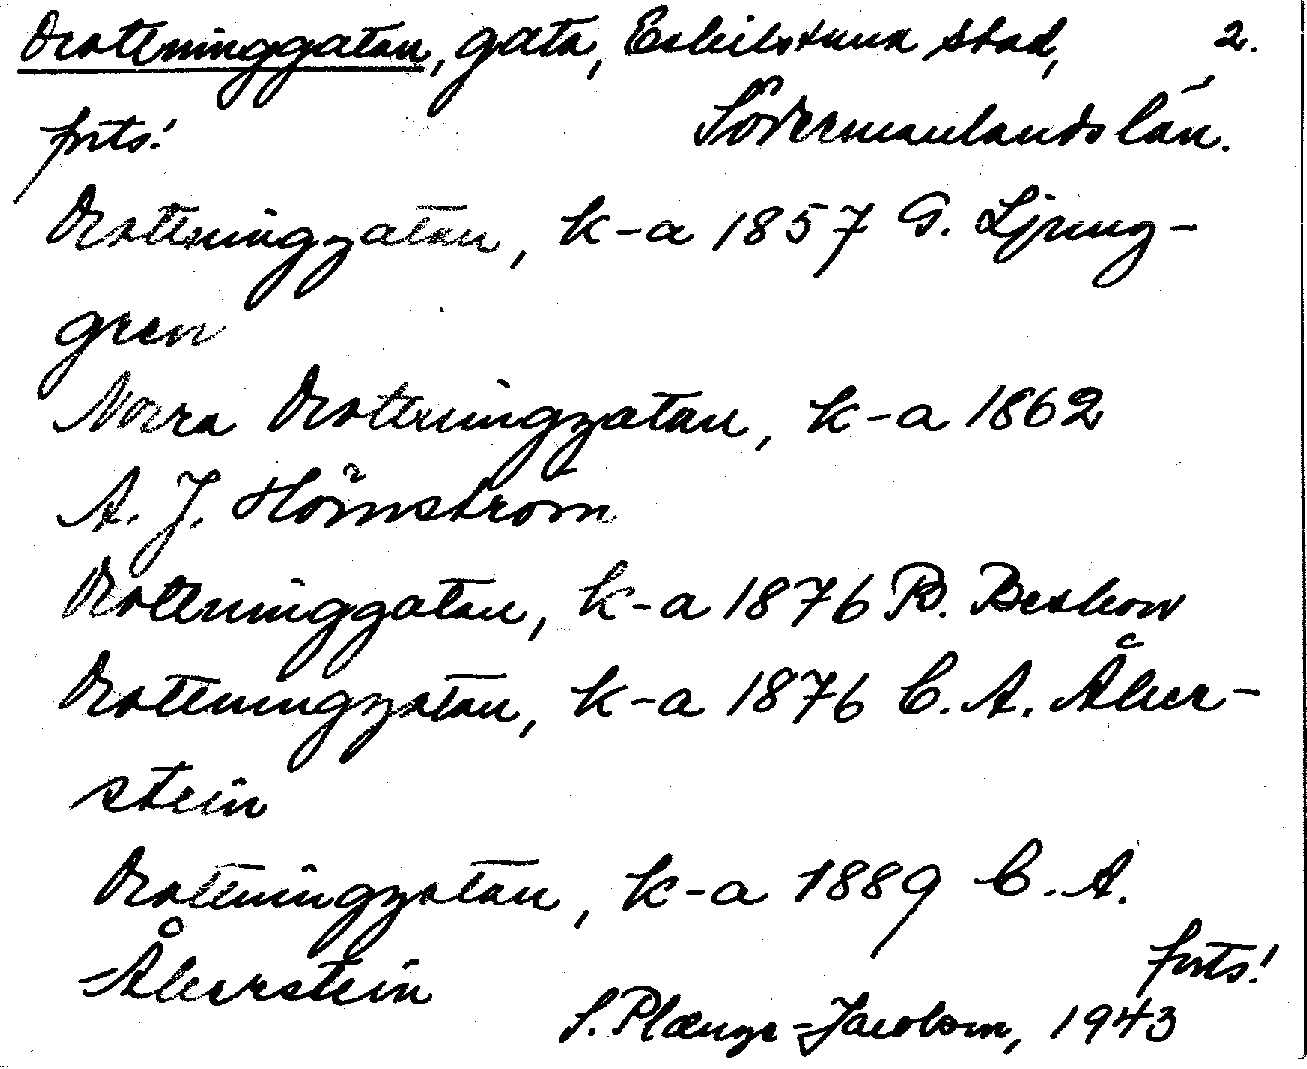 Drottninggatan, gata, Eskilstuna stad, 2.
forts! Södermanlands län.
Drottninggatan, k-a 1857 G. Ljung-
gren
Norra Drottninggatan, k-a 1862
A. J. Hörnström
Drottninggatan, k-a 1876 B. Beskow
Drottninggatan, k-a 1876 C. A. Åker-
stein
Drottninggatan, k-a 1889 C. A.
Åkerstein forts!
S. Plænge-Jacobson, 1943